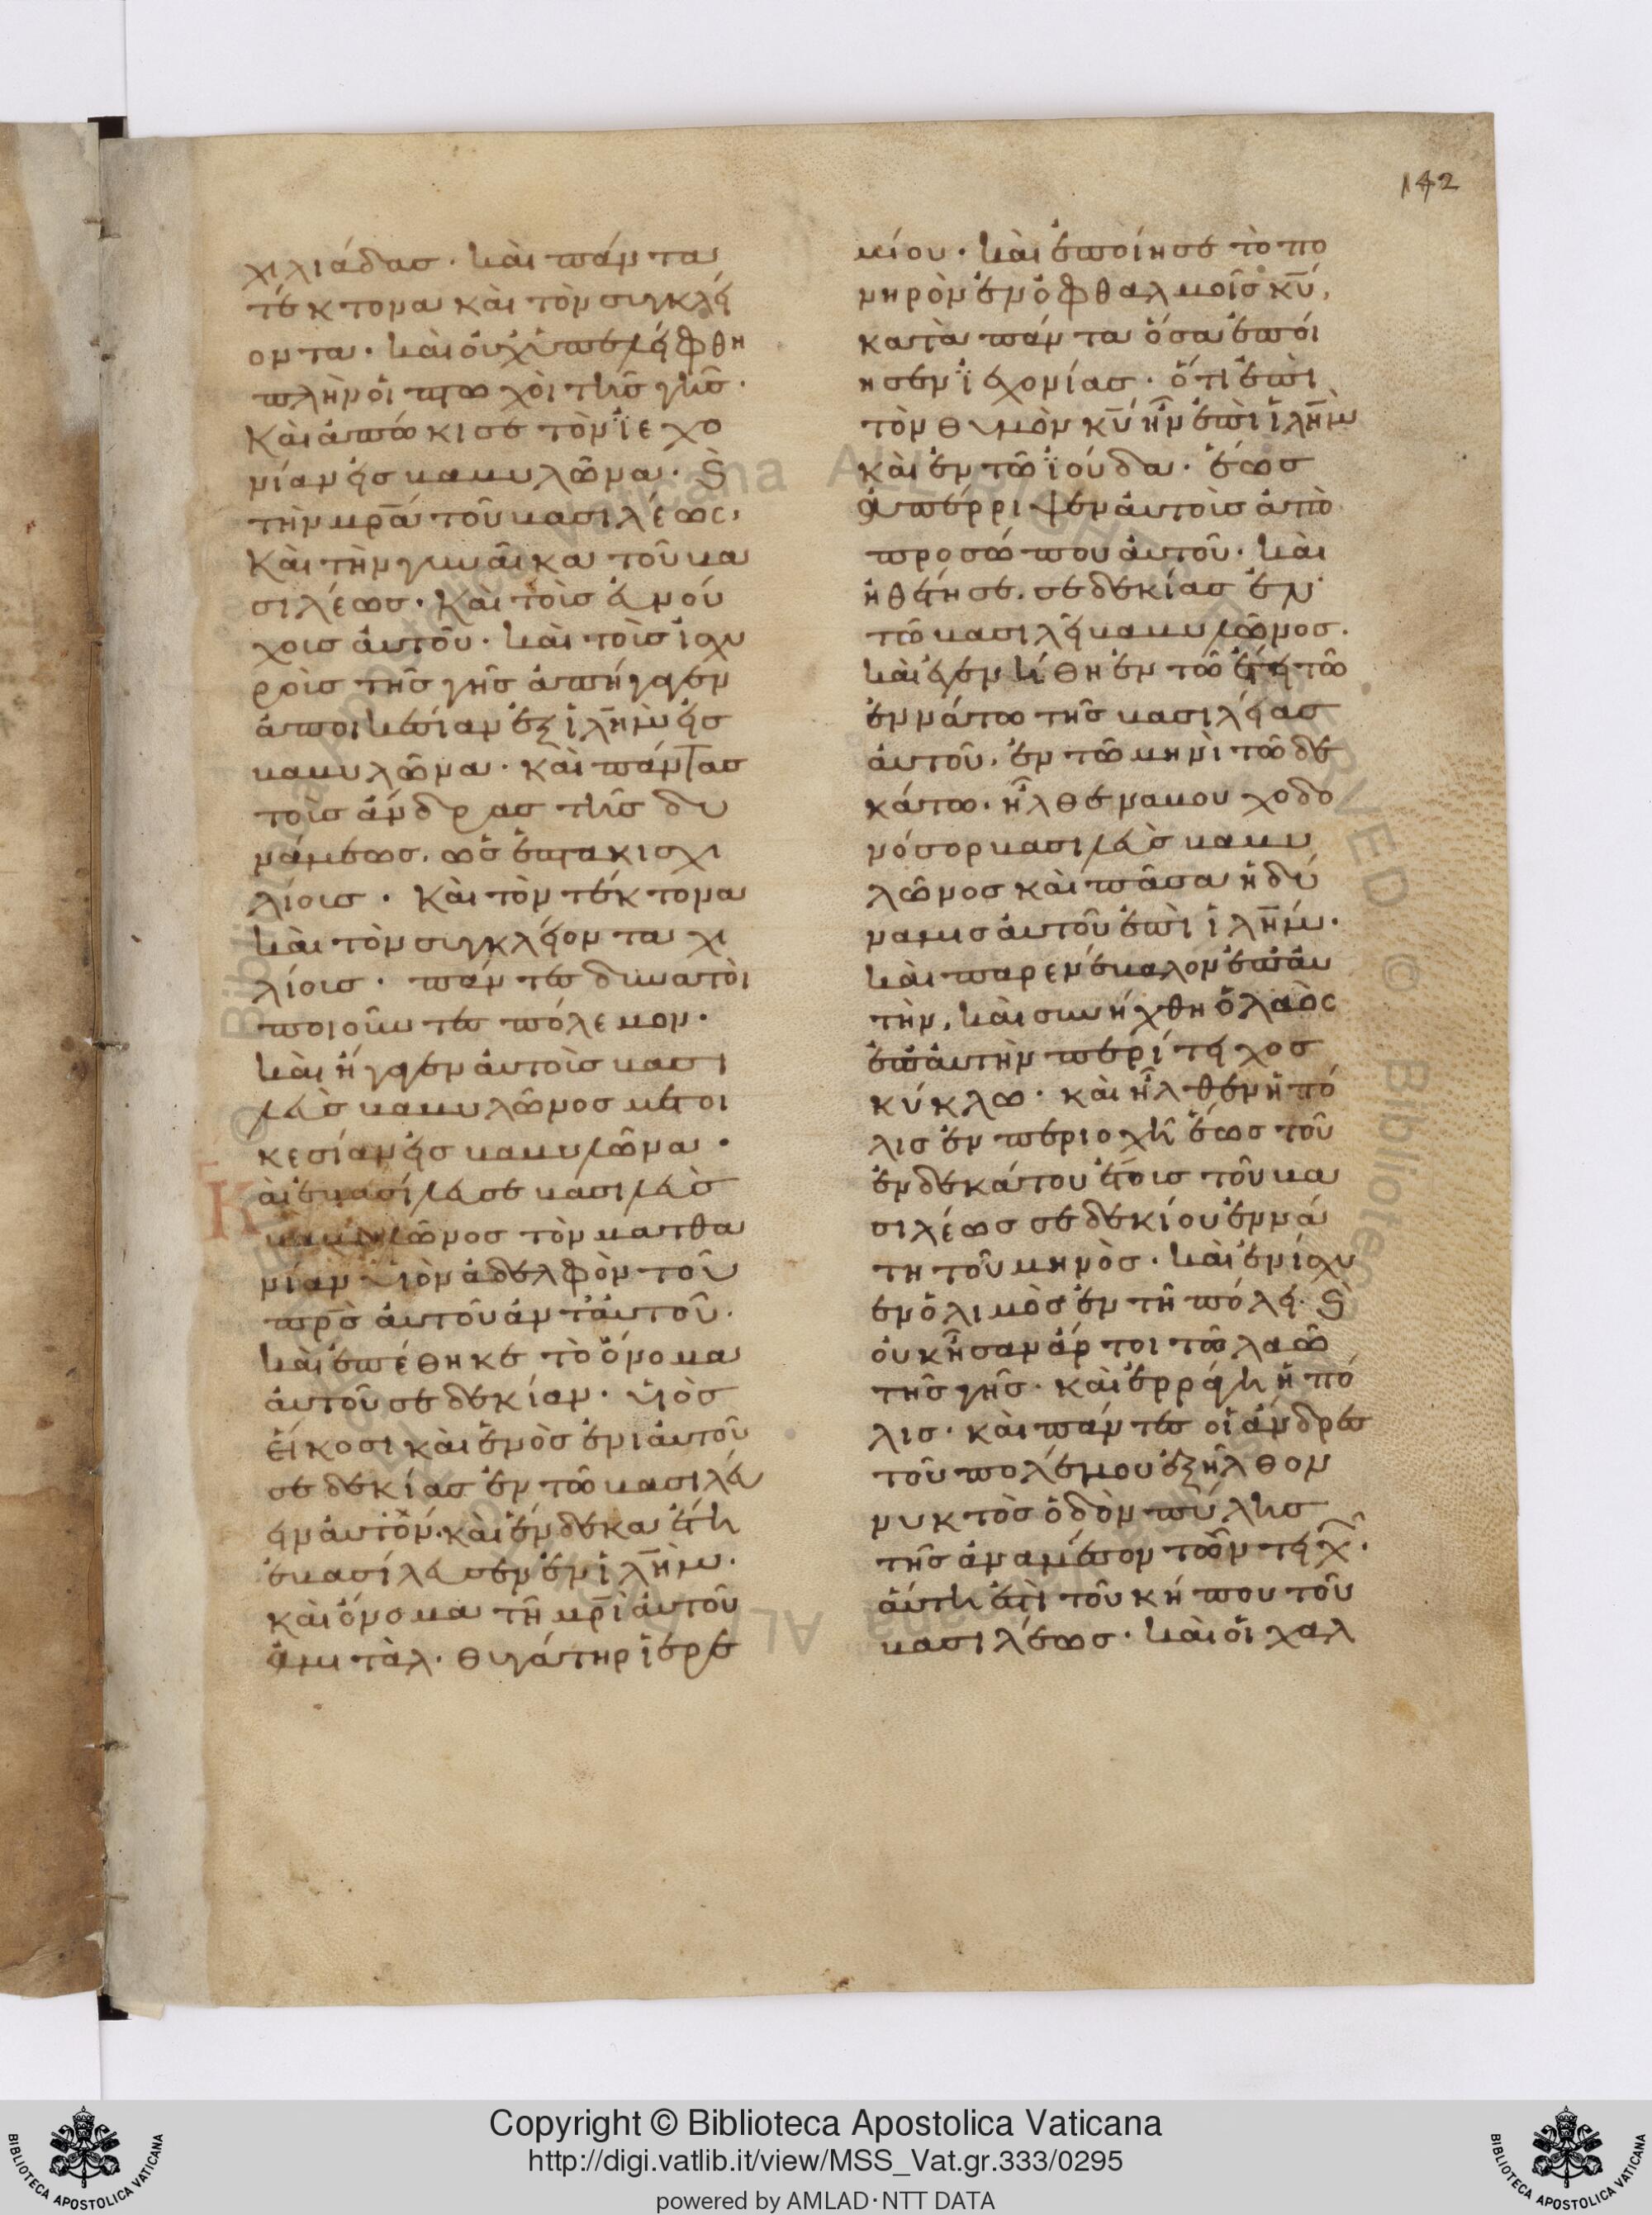 142
χιλιάδασ· καὶ πάντα
τέκτονα καὶ τὸν συγκλεί
οντα· καὶ οὐχ ὑπελείφθη
πλὴν οἱ πτωχοὶ τῆς γῆς·
Καὶ ἀπώκισε τὸν ϊεχο
νίαν εἰς βαβυλῶνα· Ϛ̀
τὴν μρ̅α τοῦ βασιλέως,
Καὶ τὴν γυναῖκα τοῦ βα
σιλέως· Καὶ τοὺς εὐνού
χους αὐτοῦ· καὶ τοὺς ἰσχυ
ροὺς τῆς γῆς ἀπήγαγεν
ἀποικεσίαν ἐξ ἰλη̅μ εἰς
βαβυλῶνα· καὶ πάντας
τοὺς ἄνδρας τῆς δυ
νάμεως, ὡς ἑπτακισχι
λίους· Καὶ τὸν τέκτονα
καὶ τὸν συγκλείοντα χι
λίους· πάντες δυνατοὶ
ποιοῦντες πόλεμον·
καὶ ἤγαγεν αὐτοὺς βασι
λεὺς βαβυλῶνος μετοι
κεσίαν εἰς βαβυλῶνα·
Καὶ ἐβασίλευσε βασιλεὺς
βαβυλῶνος τὸν ματθα
νίαν υἱὸν ἀδελφὸν τοῦ
πρ̅ς αὐτοῦ ἀντ' αὐτοῦ·
καὶ ἐπέθηκε τὸ ὄνομα
αὐτοῦ σεδεκίαν· υἱὸς
εἴκοσι καὶ ἑνὸς ἐνιαυτοῦ
σεδεκίας ἐν τῶ βασιλεύ
ειν αὐτόν· καὶ ἕνδεκα ἔτη
ἐβασίλευσεν ἐν ἰλη̅μ·
καὶ ὄνομα τῆ μρ̅ὶ αὐτοῦ
ἀμιτάλ· θυγάτηρ ἱερε
μίου· καὶ ἐποίησε τὸ πο
νηρὸν ἐν ὀφθαλμοῖς κ̅υ,
κατὰ πάντα ὅσα ἐποί
ησεν ϊεχονίας· ὅτι ἐπὶ
τὸν θυμὸν κ̅υ ἦν ἐπὶ ἰλη̅μ
καὶ ἐν τῶ ϊούδα· ἕως
ἀπέρριψεν αὐτοὺς ἀπὸ
προσώπου αὐτοῦ· καὶ
ἠθέτησε σεδεκίας ἐν
τῶ βασιλεῖ βαβυλῶνος·
καὶ ἐγενήθη ἐν τῶ ἔτει τῶ
ἐννάτω τῆς βασιλείας
αὐτοῦ, ἐν τῶ μηνὶ τῶ δε
κάτω· ἦλθε ναβουχοδο
νόσορ βασιλεὺς βαβυ
λῶνος καὶ πᾶσα ἡ δύ
ναμις αὐτοῦ ἐπὶ ἰλη̅μ·
καὶ παρενέβαλον ἐπ' αὐ
τήν, καὶ συνήχθη ὁ λαὸς
ἐπ' αὐτὴν περίτειχος
κύκλω· καὶ ἦλθεν ἡ πό
λις ἐν περιοχῆ ἕως τοῦ
ἑνδεκάτου ἔτους τοῦ βα
σιλέως σεδεκίου ἐννά
τη τοῦ μηνὸς· καὶ ἐνίσχυ
εν ὁ λιμὸς ἐν τῆ πόλει· Ϛ̀
οὐκ ἦσαν ἄρτοι τῶ λαῶ
τῆς γῆς· καὶ ἐρράγη ἡ πό
λις· καὶ πάντες οἱ ἄνδρες
τοῦ πολέμου ἐξῆλθον
νυκτὸς ὁδὸν πύλης
τῆς ἀναμέσον τῶν τειχ̅·
αὕτη ἐπὶ τοῦ κήπου τοῦ
βασιλέως· καὶ οἱ χαλ
Copyright © Biblioteca Apostolica Vaticana
http://digi.vatlib.it/view/MSS_Vat.gr.333/0295
powered by AMLAD·NTT DATA
BIBLIOTECA APOSTOLICA VATICANA
BIBLIOTECA APOSTOLICA VATICANA